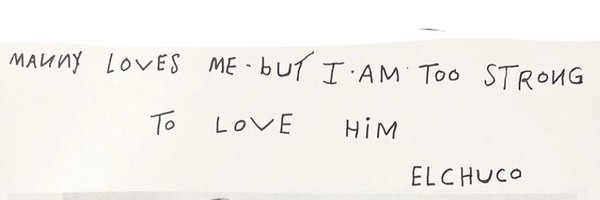 MANNY LOVES ME - bUT I · AM TOO STRONG
TO LOVE HiM
ELCHUCO